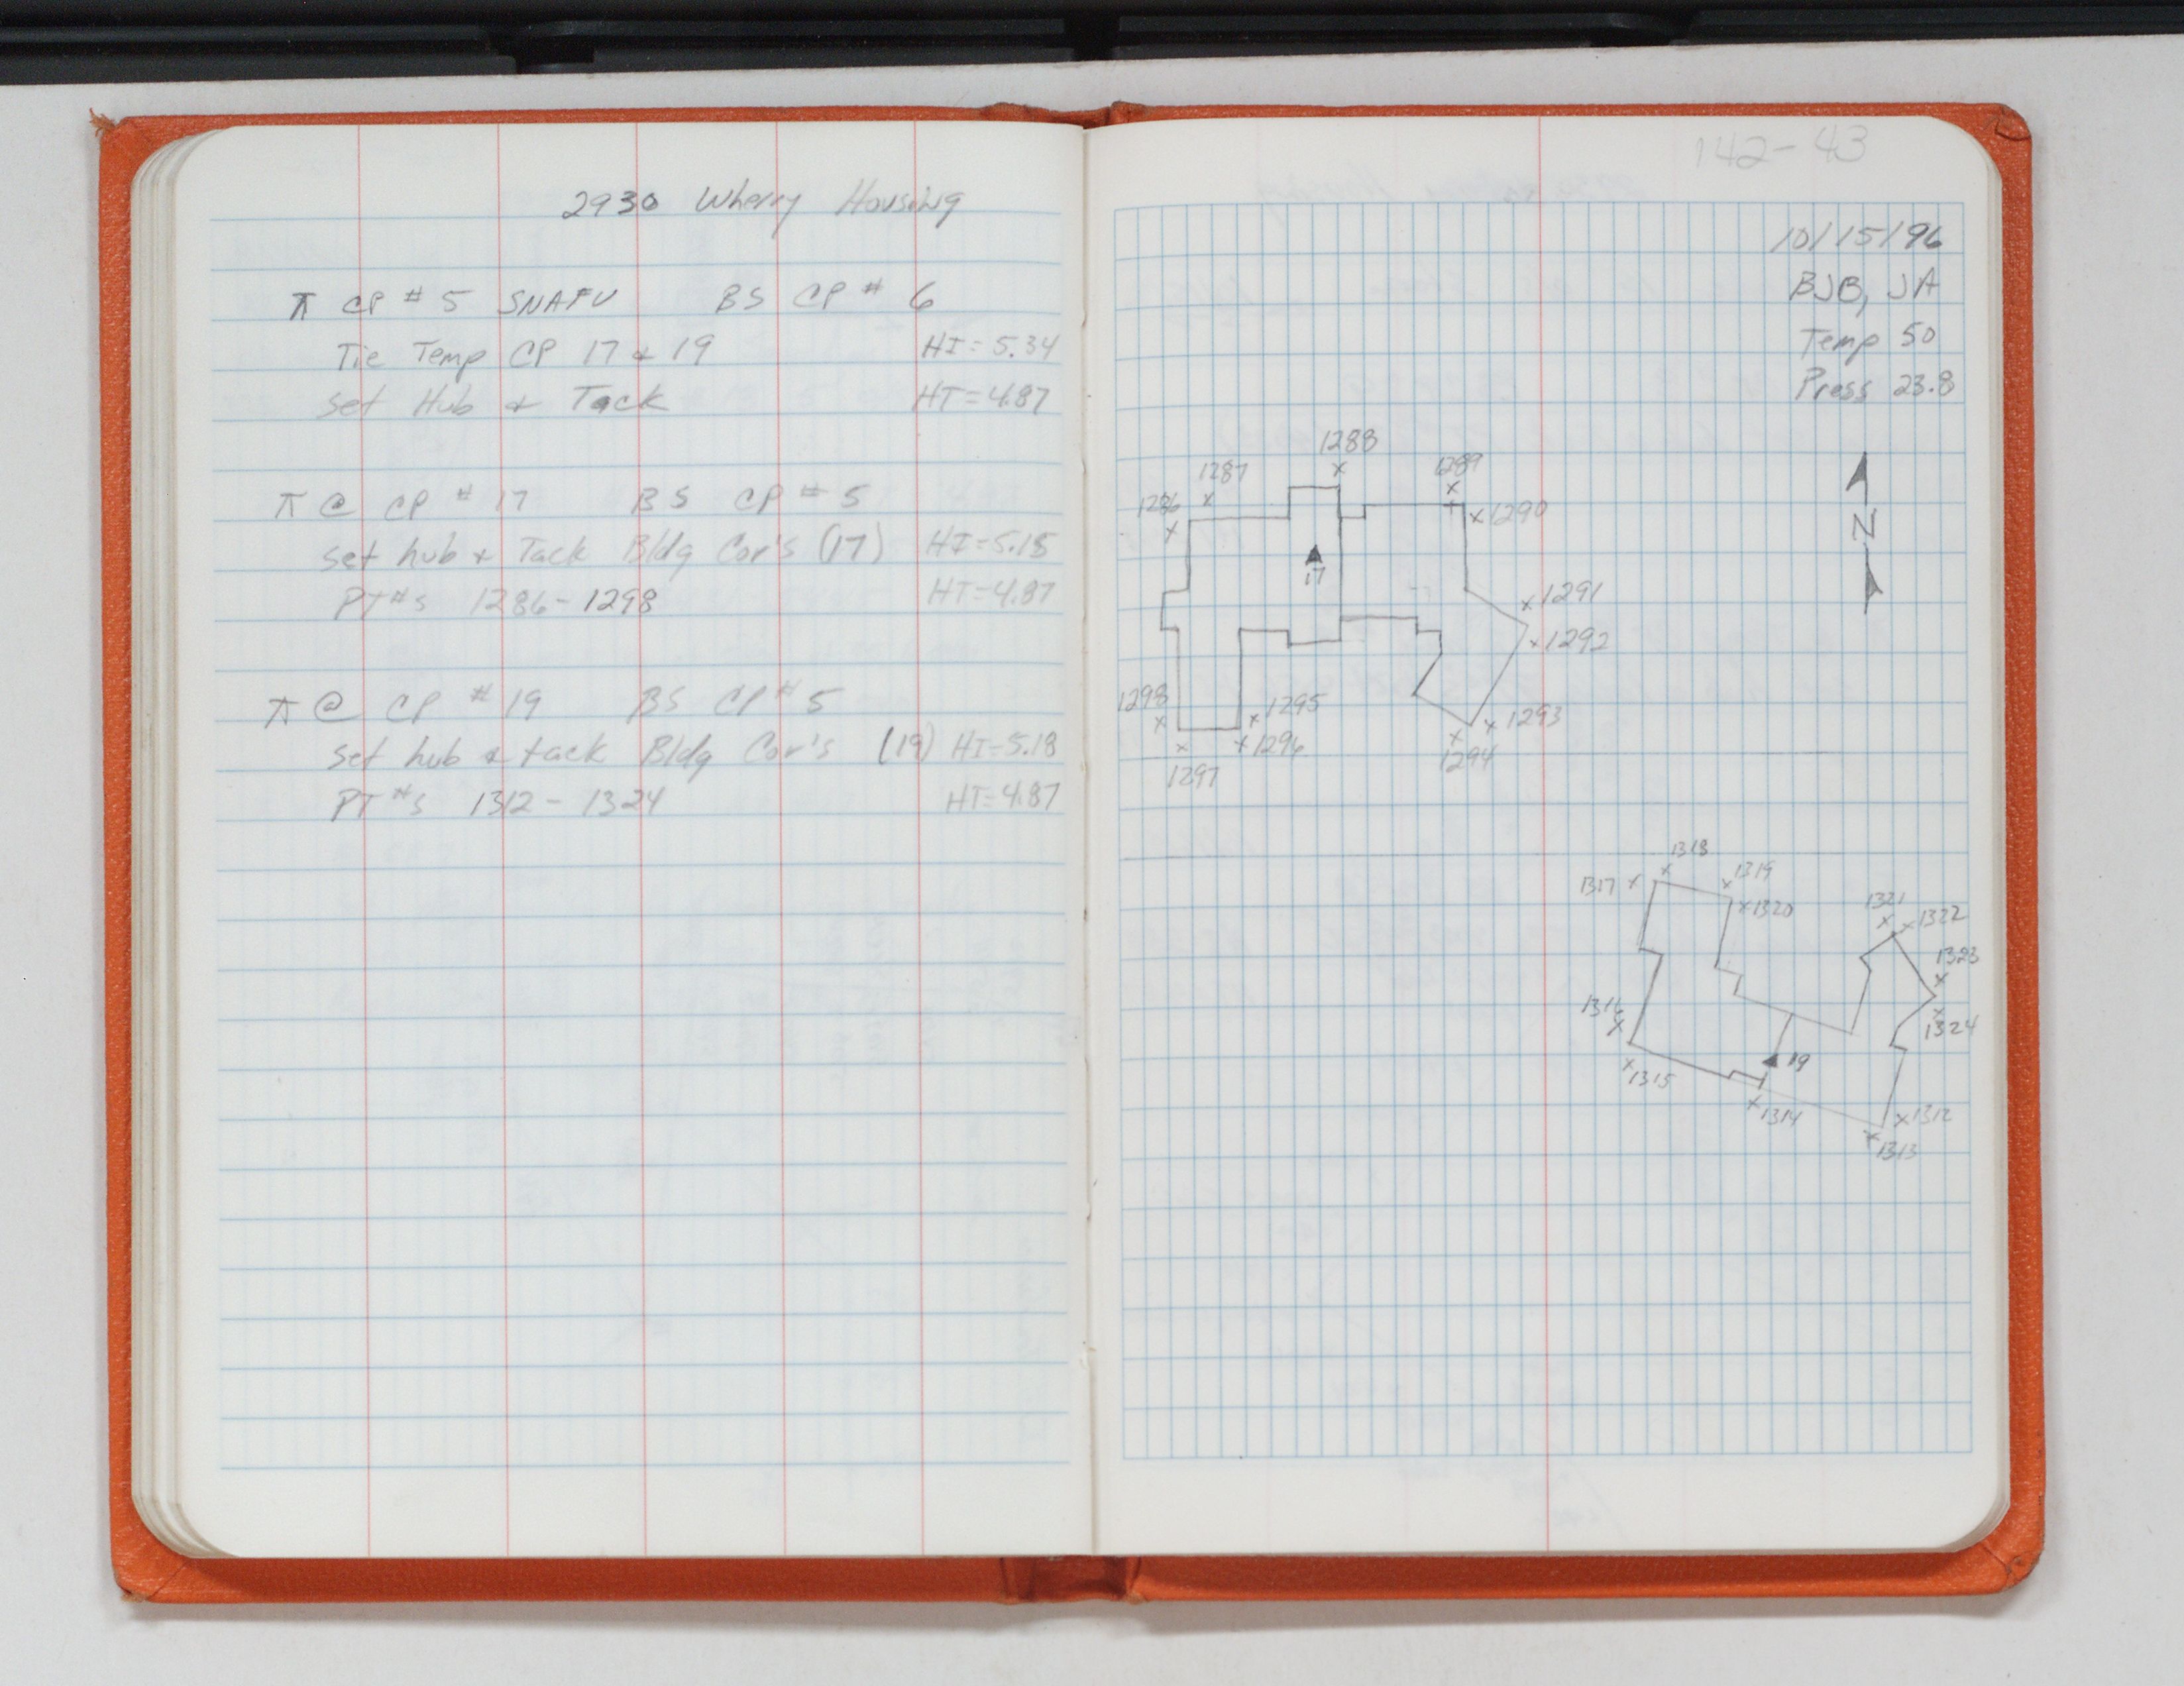 2930 Wherry Housing
π CP # 5 SNAFU BS CP # 6
Tie Temp CP 17 & 19 HI = 5.34
Set Hub & Tack HT = 4.87
π @ CP # 17 BS CP # 5
set hub & Tack Bldg Cor's (17) HI = 5.15
PT#s 1286 - 1298 HT = 4.87
π @ CP # 19 BS CP # 5
set hub & tack Bldg Cor's (19) HI = 5.18
PT#s 1312 - 1324 HT = 4.87
142-43
10/15/96
BJB, JA
Temp 50
Press 23.8
N
1288
1287
1289
1286
1290
17
1291
1292
1298
1295
1293
1296
1294
1297
1318
1317
1319
1320
1321
1322
1323
1316
1324
19
1315
1314
1312
1313